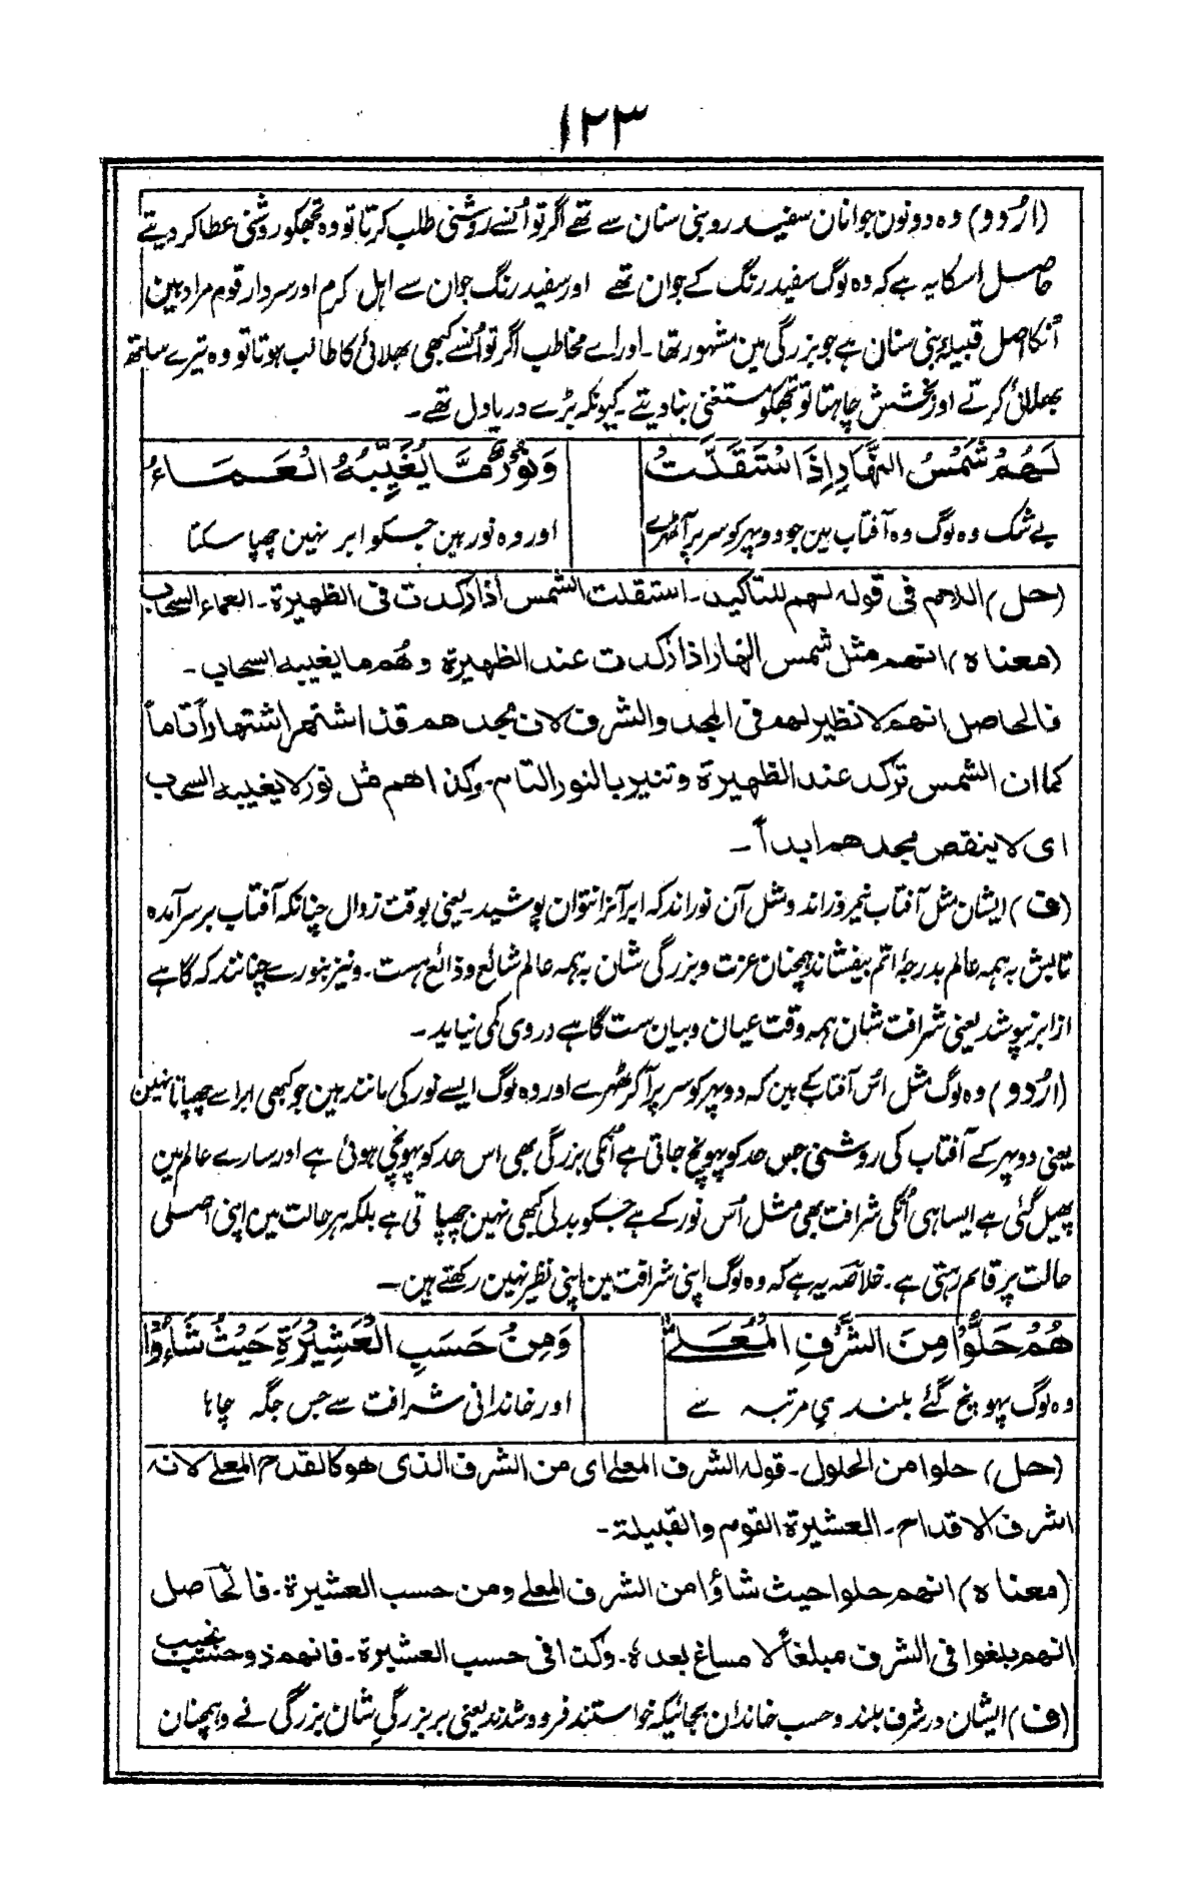 ۱۲۳
(اُردو) وہ دونون جوانان سفید رو بنی سنان سے تھے اگر تو اُنسے روشنی طلب کرتا تو وہ تجھکو روشنی عطا کر دیتے
حاصل اسکا یہ ہے کہ وہ لوگ سفید رنگ کے جوان تھے اور سفید رنگ جوان سے اہل کرم اور سردار قوم مراد ہین
اُنکا اصل قبیلۂ بنی سنان ہے جو بزرگی مین مشہور تھا۔ اور اے مخاطب اگر تو اُنسے کبھی بھلائی کا طالب ہوتا تو وہ تیرے ساتھ
بھلائی کرتے اور بخشش چاہتا تو تجھکو مستغنی بنا دیتے۔ کیونکہ بڑے دریا دل تھے۔
لَهُمْ شَمْسُ النَّهَارِ اِذَا اسْتَقَلَّتْ وَنُوْرٌ مَّا يُغَيِّبُهُ الْعَمَاءُ
بے شک وہ لوگ وہ آفتاب ہین جو دوپہر کو سر پر آٹھہرے اور وہ نور ہین جسکو ابر نہین چھپا سکتا
(حل) اللام فی قوله لهم للتاکید۔ استقلت الشمس اذا رکدت فی الظهیرة۔ العماء السحاب
(معناه) انهم مثل شمس النهار اذا رکدت عند الظهیرة و هُم ما یغیبه السحاب۔
فالحاصل انهم لا نظیر لهم فی المجد والشرف لان مجدهم قد اشتهر اشتهاراً تاماً
کما ان الشمس ترکد عند الظهیرة و تنیر بالنور التام۔ وکذا هم مثل نور لا یغیبه السحاب
ای لا ینقص مجدهم ابداً۔
(ف) ایشان مثل آفتاب نیمروز اند و مثل آن نور اند کہ ابر آنرا نتوان پوشید۔ یعنی بوقت زوال چنانکہ آفتاب بر سر آمدہ
تابش بہ ہمہ عالم بدرجۂ اتم بیفشاند ہمچنان عزت و بزرگی شان بہ ہمہ عالم شائع و ذائع ہست۔ و نیز بنورے چنانند کہ گاہے
از ابر نپوشد یعنی شرافت شان ہمہ وقت عیان و بیان ست گاہے در وی کمی نیاید۔
(اُردو) وہ لوگ مثل اُس آفتاب کے ہین کہ دوپہر کو سر پر آکر ٹھہرے اور وہ لوگ ایسے نور کی مانند ہین جو کبھی ابر سے چھپاتا نہین
یعنی دوپہر کے آفتاب کی روشنی جس حد کو پہونچ جاتی ہے اُنکی بزرگی بھی اس حد کو پہونچی ہوئی ہے اور سارے عالم مین
پھیل گئی ہے ایسا ہی اُنکی شرافت بھی مثل اُس نور کے ہے جسکو بدلی کبھی نہین چھپا تی ہے بلکہ ہر حالت مین اپنی اصلی
حالت پر قایم رہتی ہے۔ خلاصہ یہ ہے کہ وہ لوگ اپنی شرافت مین اپنی نظیر نہین رکھتے ہین۔
هُمْ حَلُّوْا مِنَ الشَّرَفِ الْمُعَلّٰے وَمِنْ حَسَبِ الْعَشِیْرَةِ حَیْثُ شَاءُوْا
وہ لوگ پہونچ گئے بلندی مرتبہ سے اور خاندانی شرافت سے جس جگہ چاہا
(حل) حلوا من الحلول۔ قوله الشرف المعلے ای من الشرف الذی هو کالقدح المعلے لانه
اشرف الاقداح۔ العشیرة القوم والقبیلة۔
(معناه) انهم حلوا حیث شاؤا من الشرف المعلے ومن حسب العشیرة۔ فالحاصل
انهم بلغوا فی الشرف مبلغاً لا مساغ بعده۔ وکذا فی حسب العشیرة۔ فانهم ذو حسب نجیب
(ف) ایشان در شرف بلند و حسب خاندان بجائیکہ خواستند فرود شدند یعنی بر بزرگیِ شان بزرگی نے و ہمچنان